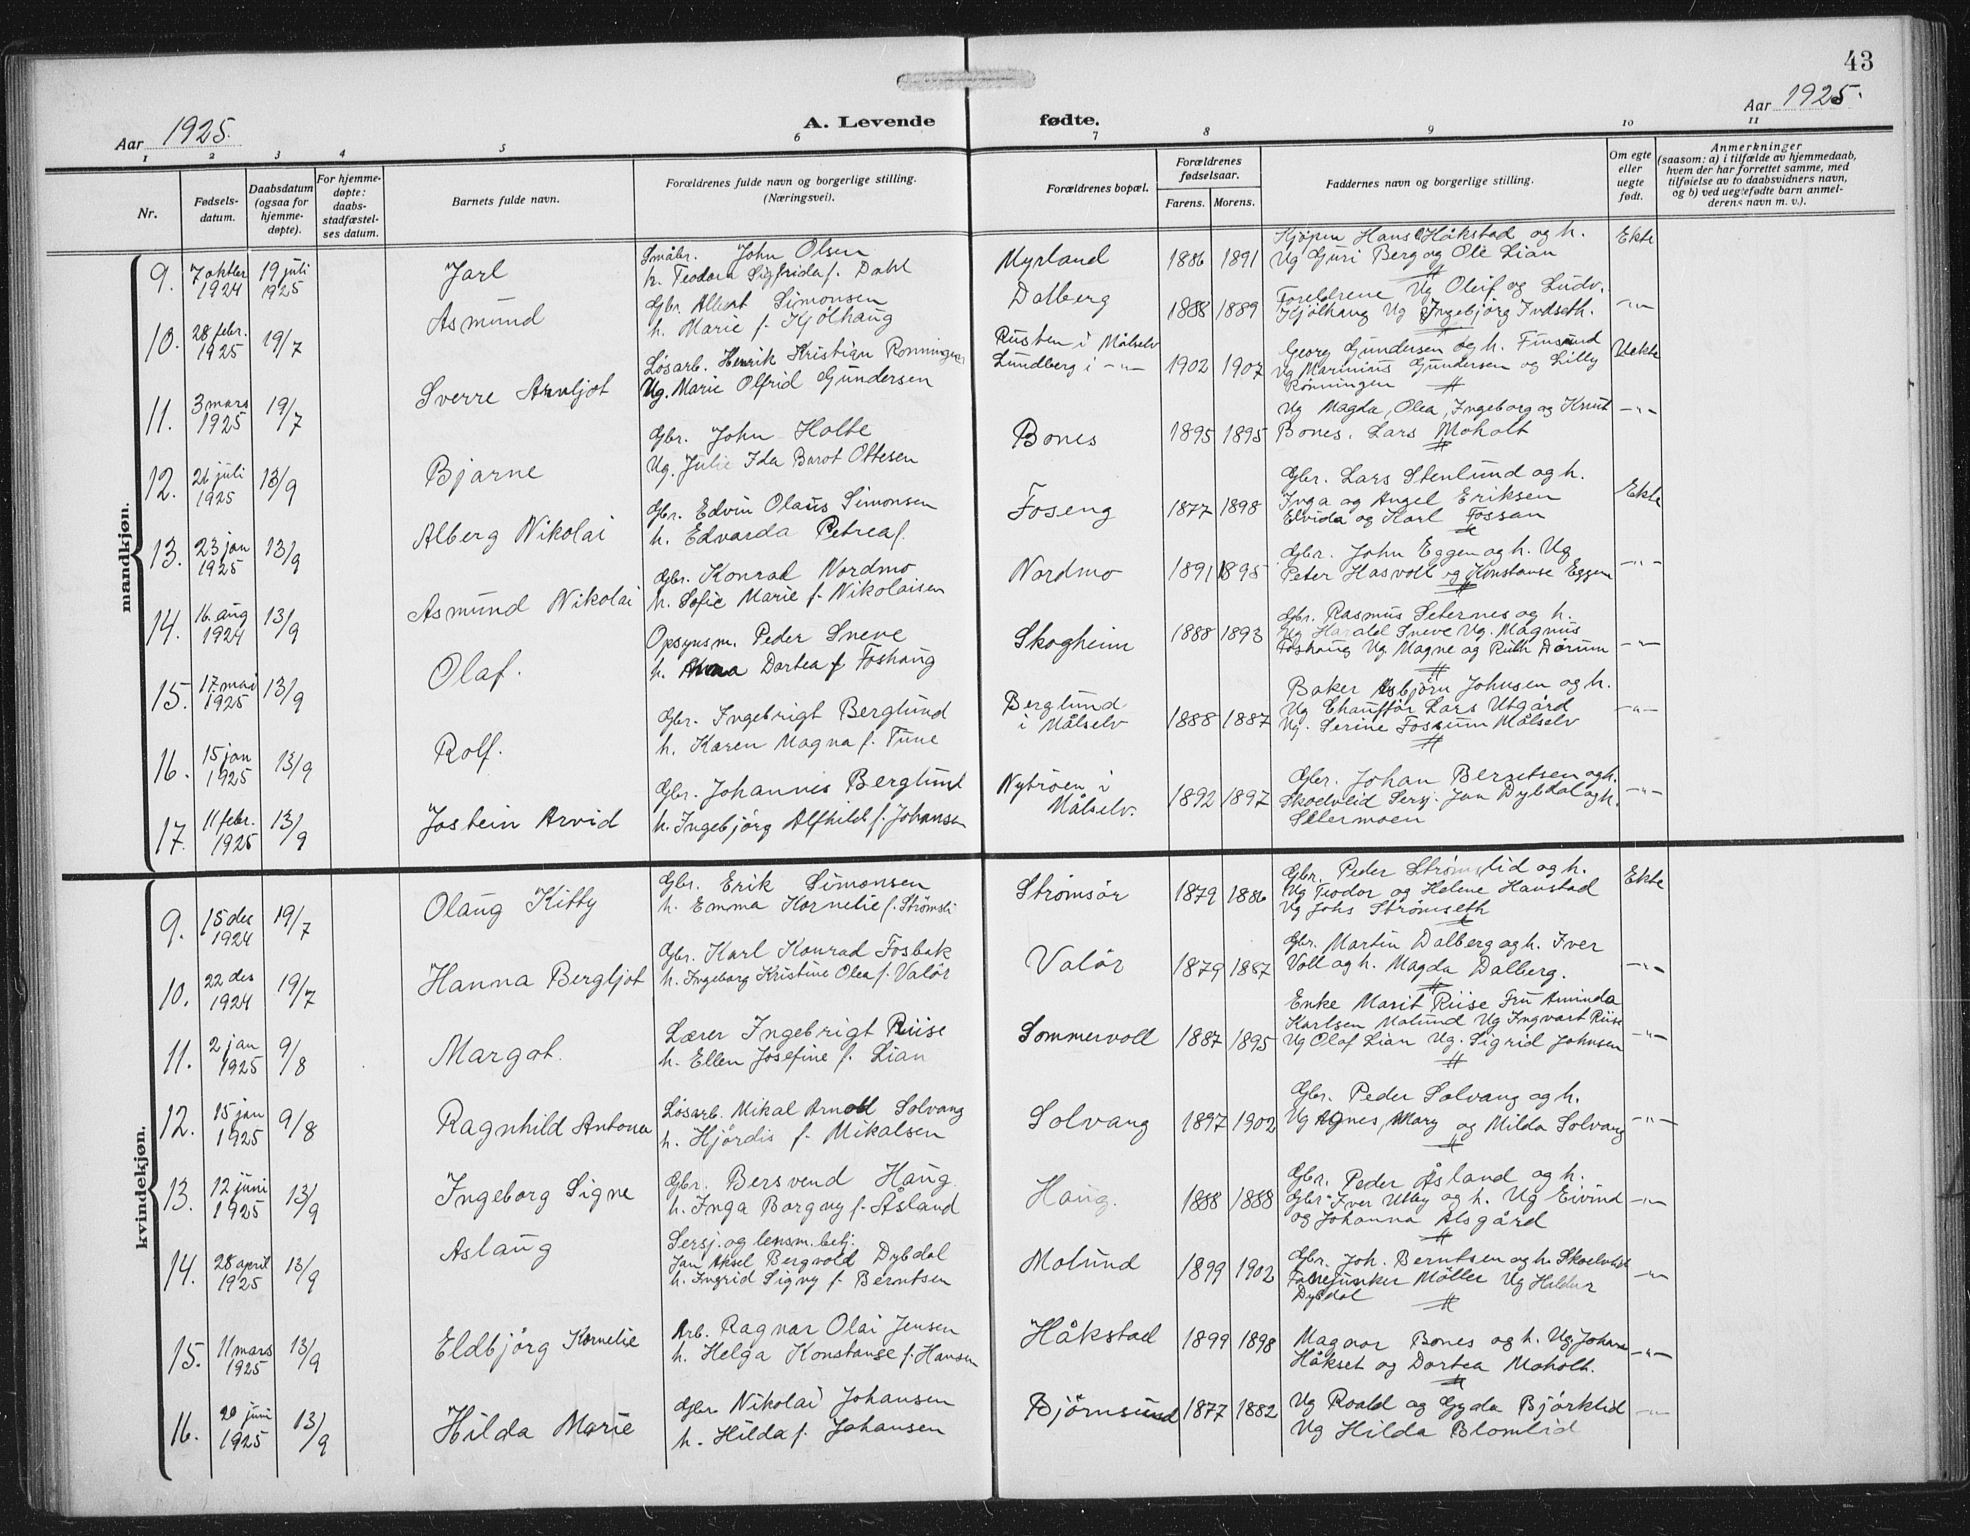 43
Aar 1925.
A. Levende fødte.
Aar 1925.
1 2 3 4 5 6 7 8 9 10 11
Nr.
Fødsels-
datum.
Daabsdatum
(ogsaa for
hjemme-
døpte).
For hjemme-
døpte:
daabs-
stadfæstel-
ses datum.
Barnets fulde navn.
Forældrenes fulde navn og borgerlige stilling.
(Næringsvei).
Forældrenes bopæl.
Forældrenes
fødselsaar.
Farens. Morens.
Faddernes navn og borgerlige stilling.
Om egte
eller
uegte
født.
Anmerkninger
(saasom: a) i tilfælde av hjemmedaab,
hvem der har forrettet samme, med
tilføielse av to daabsvidners navn,
og b) ved uegtefødte barn anmel-
derens navn m. v.).
maandkjøn.
9. 7 oktbr 1924 19 juli 1925 Jarl
Småbr. John Olsen
h. Teodora Sigfrida f. Dahl
Myrland 1886 1891
Kjøpm Hans Håkstad og h.
Ug Guri Berg og Ole Lian
Ekte
10. 28 febr. 1925 19/7 Asmund
Gbr. Albert Simonsen
h. Marie f. Kjølhaug
Dalberg 1888 1889
Foreldrene Ug Oleif og Ludv.
Kjølhaug Ug Ingebjørg Indseth.
-"-
11. 3 mars 1925 19/7 Sverre Arnljot
Løsarb. Henrik Kristian Ronningen
Ug. Marie Olfrid Gundersen
Rusten i Målselv
Lundberg i -"- 1902 1907
Georg Gundersen og h. Finsund
Ug Marinius Gundersen og Lilly
Rønningen
Uekte
12. 26 juli 1925 13/9 Bjarne
Gbr. John Holte
Ug. Julie Ida Barot Ottesen
Bones 1895 1895
Ug Magda, Olea, Ingeborg og Knut
Bones. Lars Moholt
-"-
13. 23 jan 1925 13/9 Alberg Nikolai
Gbr. Edvin Olaus Simonsen
h. Edvarda Petrea f.
Foseng 1877 1898
Gbr. Lars Stenlund og h.
Inga og Angel Eriksen
Elvida og Karl Fossan
Ekte
14. 16. aug 1924 13/9 Asmund Nikolai
Gbr. Konrad Nordmo
h. Sofie Marie f. Nikolaisen
Nordmo 1891 1895
Gbr. John Eggen og h. Ug
Peter Hasvoll og Konstanse Eggen
-"-
15. 17. mai 1925 13/9 Olaf.
Opsynsm. Peder Sneve
h. Anna Dortea f. Foshaug
Skogheim 1888 1893
Gbr. Rasmus Seternes og h.
Ug Harald Sneve Ug. Magnus
Foshaug Ug Magne og Ruth Dørum
-"-
16. 15 jan 1925 13/9 Rolf.
Gbr. Ingebrigt Berglund
h. Karen Magna f. Tune
Berglund
i Målselv 1888 1887
Baker Asbjørn Johnsen og h.
Ug Chauffør Lars Utgård
Ug. Serine Fossum Målselv
-"-
17. 11 febr. 1925 13/9 Jostein Arvid
Gbr. Johannes Berglund
h. Ingebjørg Alfhild f. Johansen
Nybrøen i
Målselv. 1892 1897
Gbr. Johan Berntsen og h.
Skoelvlid Sersj. Jan Dybdal og h.
Setermoen
-"-
kvindekjøn.
9. 15 des 1924 19/7 Olaug Kitty
Gbr. Erik Simonsen
h. Emma Kornelie f. Strømsli
Strømsør 1879 1886
Gbr. Peder Strømslid og h.
Ug Teodor og Helene Haustad
Ug Johs Strømseth
Ekte
10. 22 des 1924 19/7 Hanna Bergljot
Gbr. Karl Konrad Fosbak
h. Ingeborg Kristine Olea f. Valør
Valør 1879 1887
Gbr. Martin Dalberg og h. Iver
Voll og h. Magda Dalberg.
-"-
11. 2 jan 1925 9/8 Margot.
Lærer Ingebrigt Riise
h. Ellen Josefine f. Lian
Sommervoll 1887 1895
Enke Marit Riise Fru Aminda
Karlsen Molund Ug Ingvart Riise
Ug Olaf Lian Ug. Sigrid Johnsen
-"-
12. 15 jan 1925 9/8 Ragnhild Antona
Løsarb. Mikal Arnold Solvang
h. Hjørdis f. Mikalsen
Solvang 1897 1902
Gbr. Peder Solvang og h.
Ug Agnes, Mary og Milda Solvang
-"-
13. 12 juni 1925 13/9 Ingeborg Signe
Gbr. Bersvend Haug.
h. Inga Borgny f. Åsland
Haug. 1888 1888
Gbr. Peder Åsland og h.
Gbr Iver Utby og h. Ug Eivind
og Johanna Alsgård
-"-
14. 28 april 1925 13/9 Aslaug
Sersj. og lensm. betj.
Jan Aksel Bergvold Dybdal
h. Ingrid Signy f. Berntsen
Molund 1899 1902
Gbr. Joh. Berntsen og h. Skoelvlid
Fanejunker Møller Ug Hildur
Dybdal
-"-
15. 11 mars 1925 13/9 Eldbjørg Kornelie
Arb. Ragnar Olai Jensen
h. Helga Konstanse f. Hansen
Håkstad 1899 1898
Magnor Bones og h. Ug. Johan
Håkset og Dortea Moholt.
-"-
16. 20 juni 1925 13/9 Hilda Marie
Gbr Nikolai Johansen
h. Hilda f. Johansen
Bjørnsund 1877 1882
Ug Roald og Gyda Bjørklid
Ug Hilda Blomlid
-"-